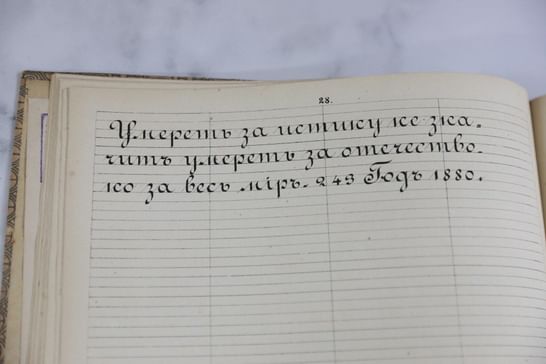 28.
Умереть за истину не зна-
читъ умереть за отечество.
но за весь міръ. 243 Годъ 1880.